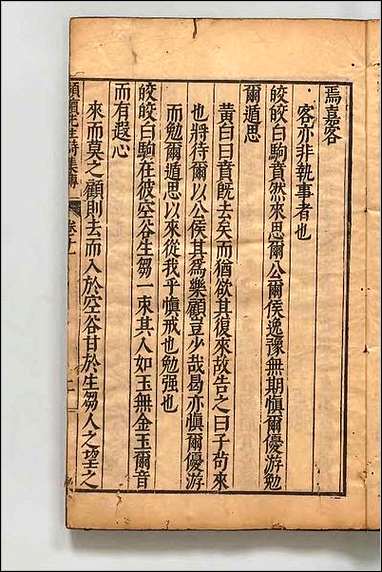 焉嘉客
客亦非執事者也
皎皎白駒賁然來思爾公爾侯逸豫無期慎爾優游勉
爾遁思
黃白曰賁旣去矣而猶欲其復來故告之曰子苟來
也將待爾以公侯其為樂顧豈少哉曷亦慎爾優游
而勉爾遁思以來從我乎慎戒也勉强也
皎皎白駒在彼空谷生芻一束其人如玉無金玉爾音
而有遐心
來而莫之顧則去而入於空谷甘於生芻人之望之
潁濱先生詩集傳 卷十一 二